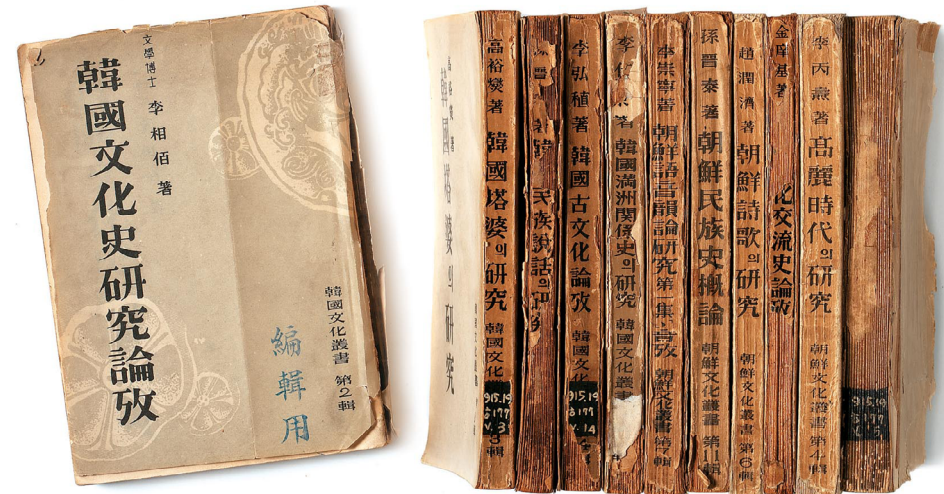 文學博士 李相佰 著
韓國文化史硏究論攷
韓國文化叢書 第2輯
編輯用
高裕燮 著
韓國塔婆의 硏究
高裕燮著 韓國塔婆의硏究 韓國文化
915.19
177
V.3
輯
民族說話의
李弘稙著 韓國古文化論攷 韓國文化
915.19
177
V.14
李 著 韓國滿洲関係史의硏究 韓國文化叢
李崇寧著 朝鮮語音韻論硏究第一集·音攷 朝鮮文化叢書第7輯
孫晋泰著 朝鮮民族史概論 朝鮮文化叢書 第11輯
趙潤濟著 朝鮮詩歌의硏究 朝鮮文化叢書第6輯
金庠基著 化交流史論攷
李丙燾著 高麗時代의硏究 朝鮮文化叢書第4輯
915.19
177